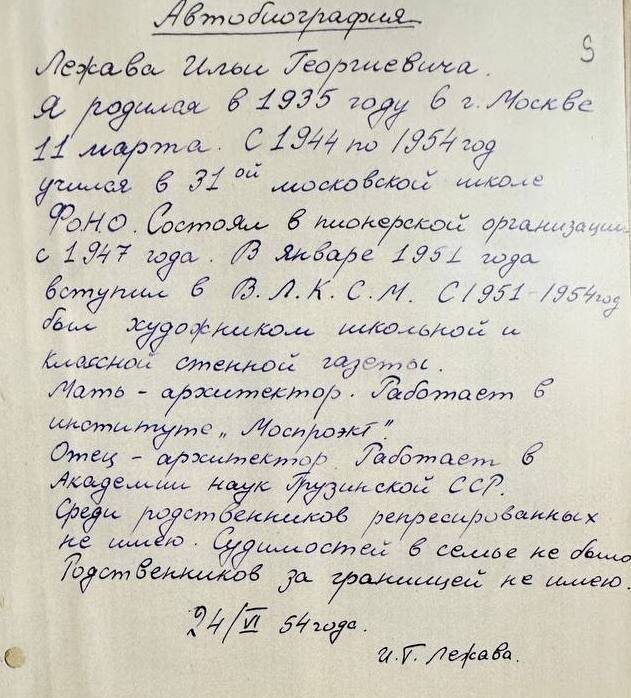 Автобиография
9
Лежава Ильи Георгиевича.
Я родился в 1935 году в г. Москве
11 марта. С 1944 по 1954 год
учился в 31ой московской школе
ФОНО. Состоял в пионерской организации
с 1947 года. В январе 1951 года
вступил в В.Л.К.С.М. С 1951-1954 год
был художником школьной и
классной стенной газеты.
Мать - архитектор. Работает в
институте „Моспроэкт"
Отец - архитектор. Работает в
Академии наук Грузинской ССР.
Среди родственников репресированных
не имею. Судимостей в семье не было
Родственников за границей не имею.
24/VI 54 года.
И.Г. Лежава.